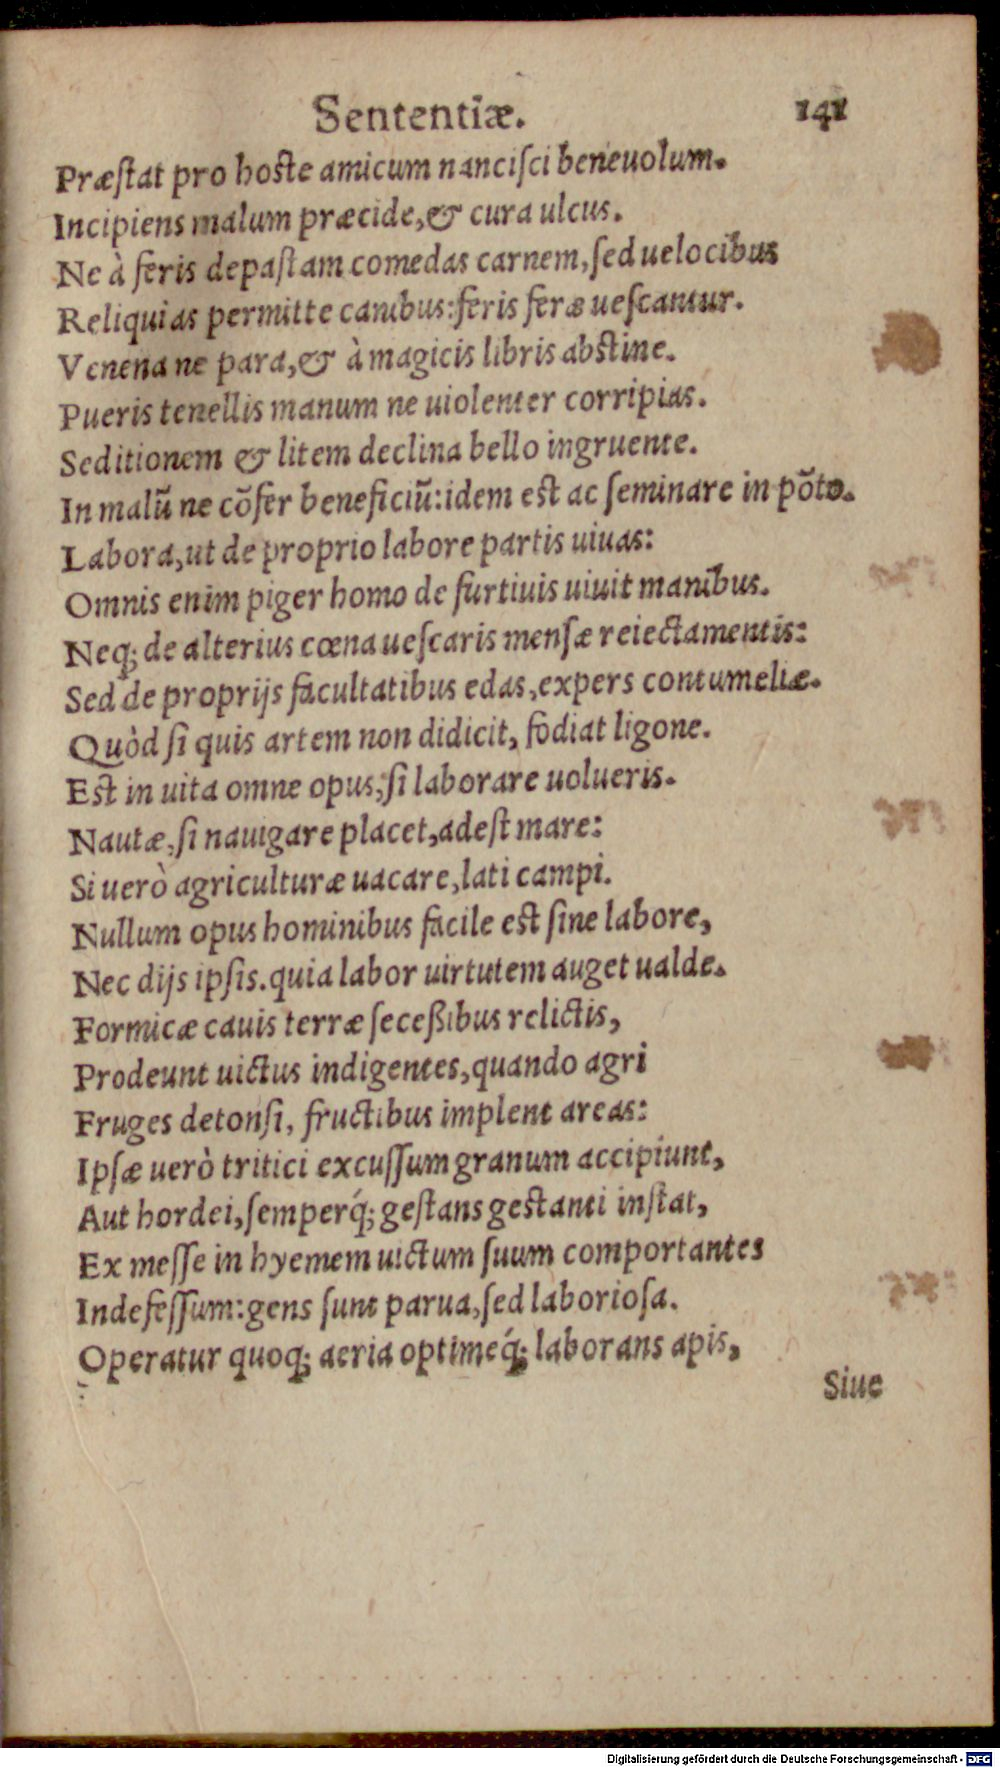 Sententiæ. 141
Præſtat pro hoſte amicum nanciſci beneuolum.
Incipiens malum præcide, & cura ulcus.
Ne à feris depaſtam comedas carnem, ſed uelocibus
Reliquias permitte canibus: feris feræ ueſcantur.
Venena ne para, & à magicis libris abſtine.
Pueris tenellis manum ne uiolenter corripias.
Seditionem & litem declina bello ingruente.
In malũ ne cõfer beneficiũ: idem eſt ac ſeminare in põto.
Labora, ut de proprio labore partis uiuas:
Omnis enim piger homo de furtiuis uiuit manibus.
Neq; de alterius cœna ueſcaris menſæ reiectamentis:
Sed de proprijs facultatibus edas, expers contumeliæ.
Quòd ſi quis artem non didicit, fodiat ligone.
Eſt in uita omne opus, ſi laborare uolueris.
Nautæ, ſi nauigare placet, adeſt mare:
Si uerò agriculturæ uacare, lati campi.
Nullum opus hominibus facile eſt ſine labore,
Nec dijs ipſis. quia labor uirtutem auget ualde.
Formicæ cauis terræ ſeceßibus relictis,
Prodeunt uictus indigentes, quando agri
Fruges detonſi, fructibus implent areas:
Ipſæ uerò tritici excuſſum granum accipiunt,
Aut hordei, ſemperq́; geſtans geſtanti inſtat,
Ex meſſe in hyemem uictum ſuum comportantes
Indefeſſum: gens ſunt parua, ſed laborioſa.
Operatur quoq; aeria optimeq́; laborans apis,
Siue
Digitalisierung gefördert durch die Deutsche Forschungsgemeinschaft - DFG